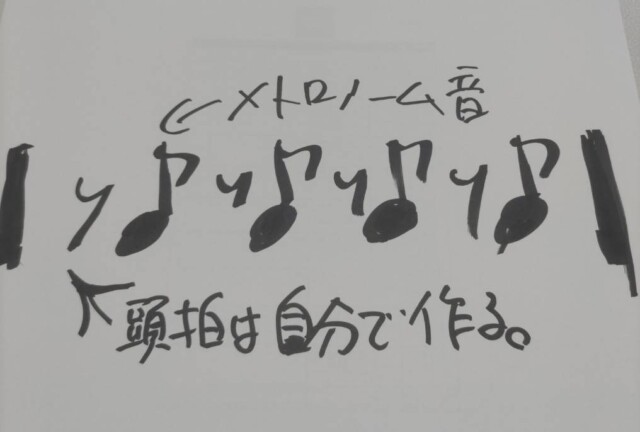 メトロノーム音
頭拍は自分で作る。